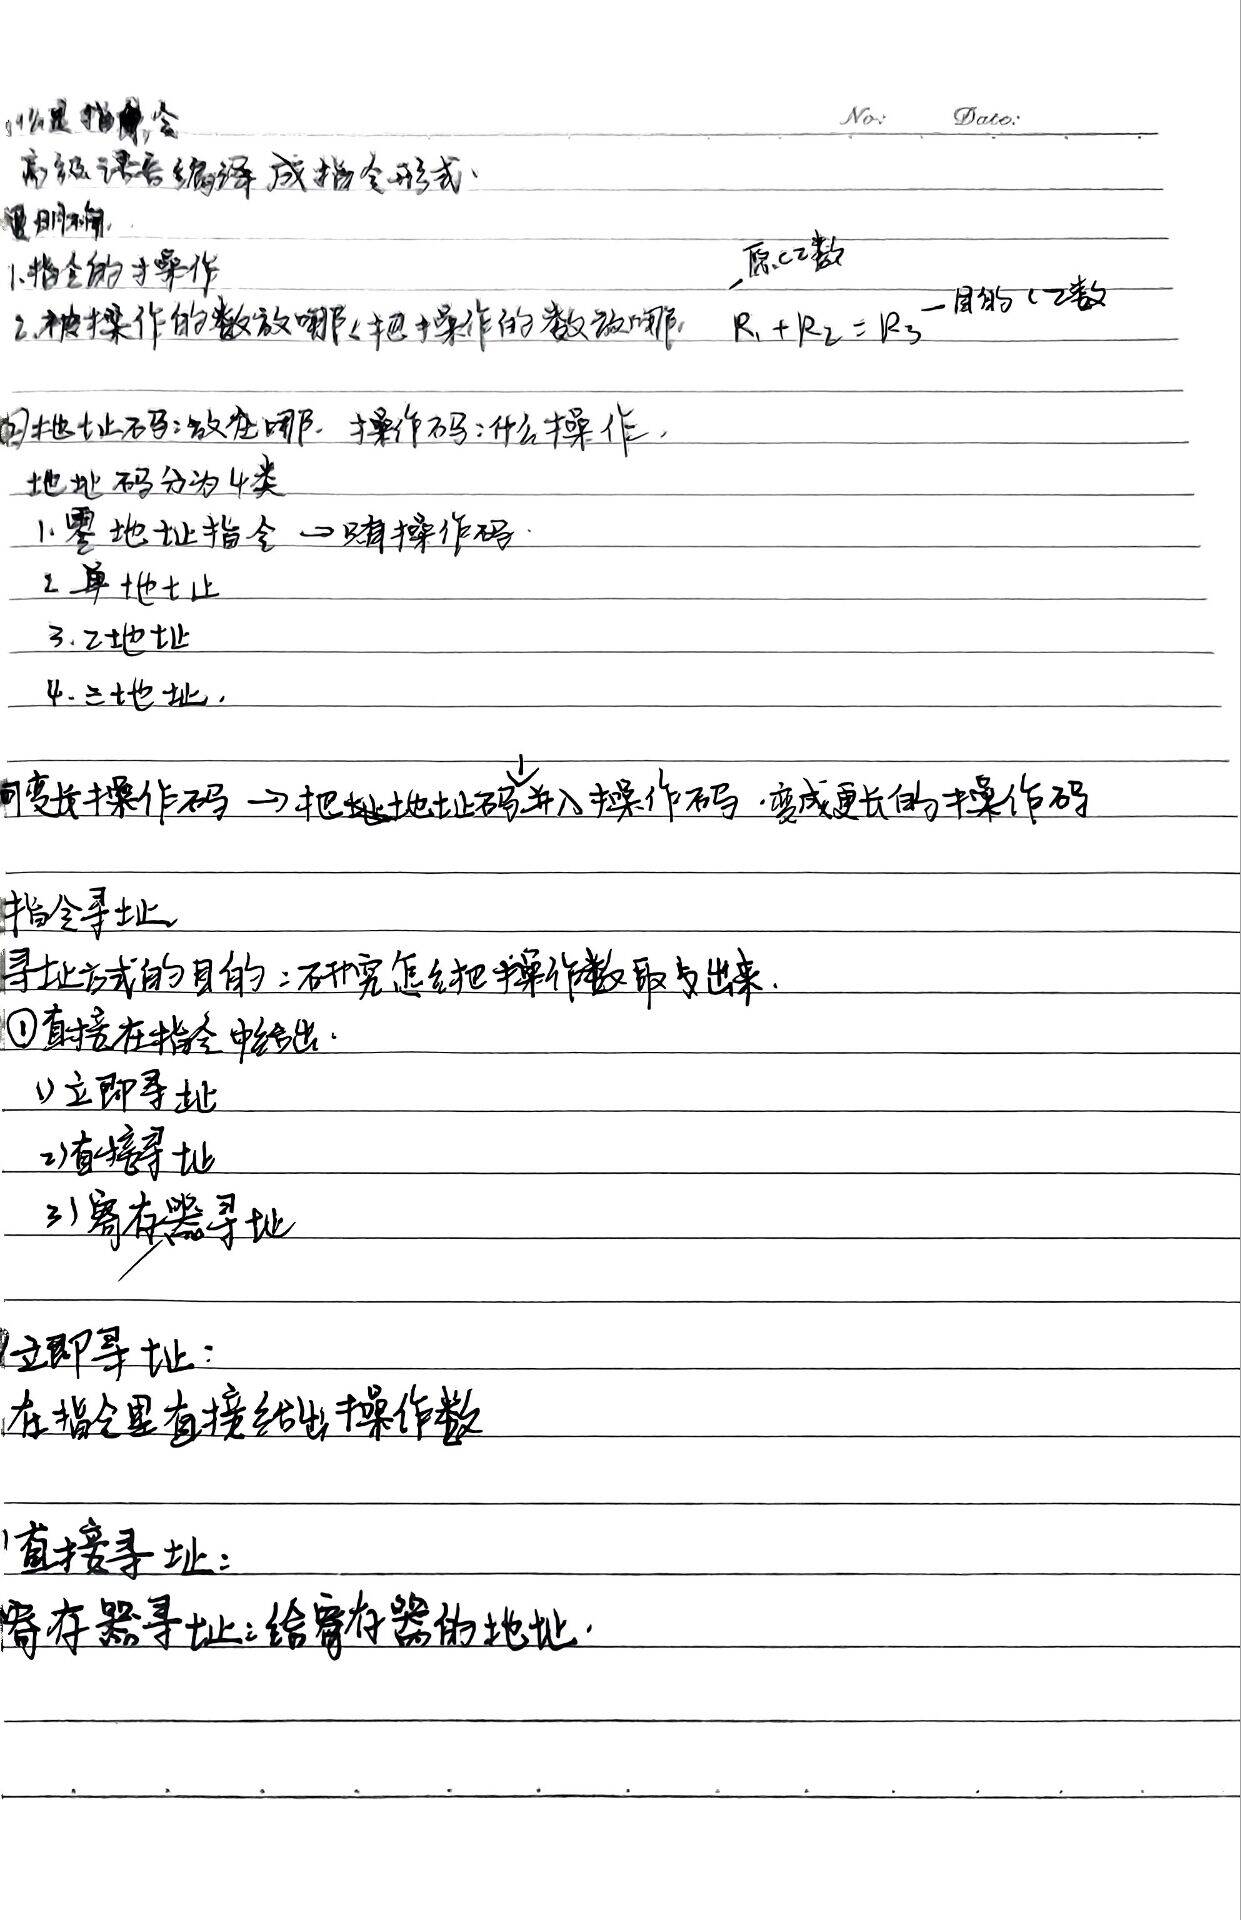 No: Date:
是指令
高级语言编译成指令形式.
明确.
1.指令的操作
原CZ数
2.被操作的数放哪、把操作的数放哪. R₁+R₂=R₃ 目的CZ数
地址码:放在哪. 操作码:什么操作.
地址码分为4类
1.零地址指令→只有操作码.
2.单地址
3.乙地址
4.三地址.
变长操作码→把地址码并入操作码.变成更长的操作码
指令寻址
寻址方式的目的:研究怎么把操作数取出来.
①直接在指令中给出.
1)立即寻址
2)直接寻址
3)寄存器寻址
立即寻址:
在指令里直接给出操作数
直接寻址:
寄存器寻址:给寄存器的地址.